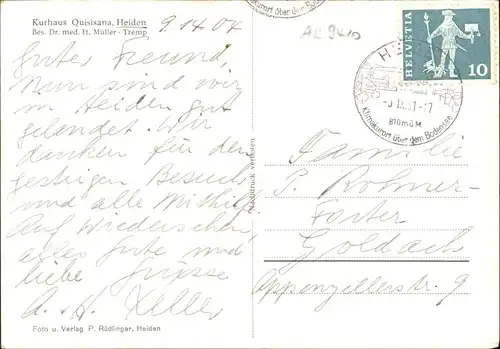 Kurhaus Quisisana, Heiden
Bes. Dr. med. H. Müller-Tremp
9.1404
Guter Freund,
Nun sind wir
in Heiden gut
gelandet. Wir
danken für den
gestrigen Besuch
und alle
Auf Wiedersehen
alles Gute und
liebe Grüsse
A. + H. Keller
Foto u. Verlag P. Rüdlinger, Heiden
Nachdruck verboten
Klimakurort über dem Bodensee
AR 9410
HELVETIA
10
810müM
Klimakurort über dem Bodensee
Familie
P. Rohner-
Forster
Goldach
Appenzellerstr. 9